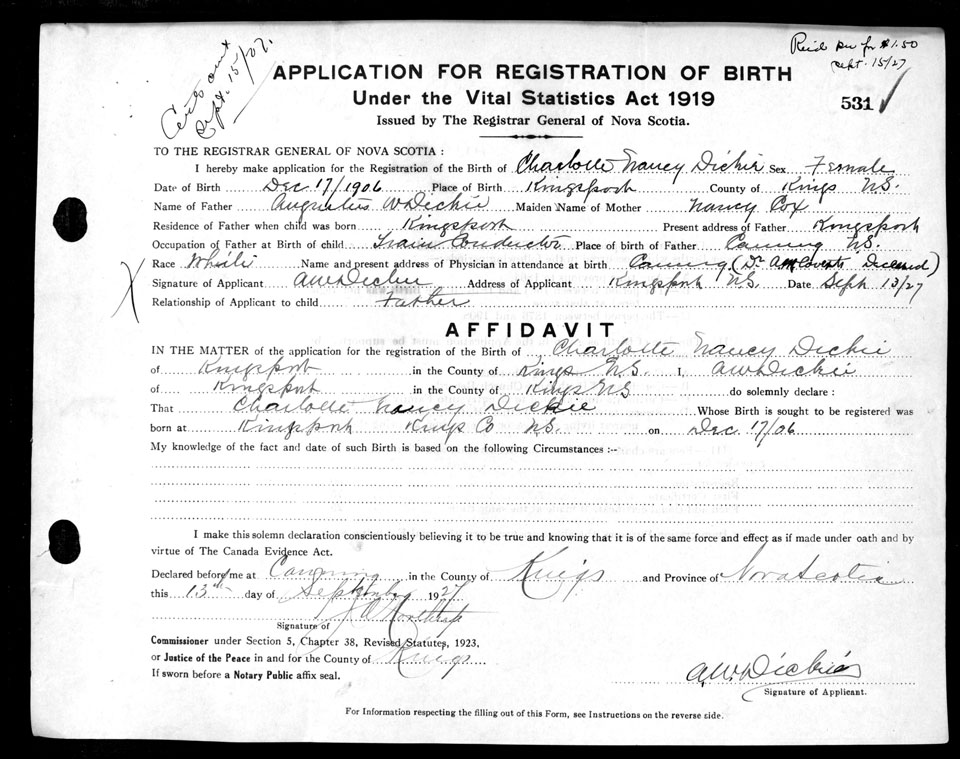 Cert sent
Sept. 15/27.
Rec'd for $1.50
Sept. 15/27
APPLICATION FOR REGISTRATION OF BIRTH
Under the Vital Statistics Act 1919
531
Issued by The Registrar General of Nova Scotia.
TO THE REGISTRAR GENERAL OF NOVA SCOTIA :
I hereby make application for the Registration of the Birth of Charlotte Nancy Dickie Sex Female
Date of Birth Dec 17/1906 Place of Birth Kingsport County of Kings NS.
Name of Father Augustus W Dickie Maiden Name of Mother Nancy Cox
Residence of Father when child was born Kingsport Present address of Father Kingsport
Occupation of Father at Birth of child Train Conductor Place of birth of Father Canning NS.
Race White Name and present address of Physician in attendance at birth Canning (Dr Deceased)
Signature of Applicant AW Dickie Address of Applicant Kingsport NS. Date Sept 13/27
Relationship of Applicant to child Father
AFFIDAVIT
IN THE MATTER of the application for the registration of the Birth of Charlotte Nancy Dickie
of Kingsport in the County of Kings NS. I, AW Dickie
of Kingsport in the County of Kings NS do solemnly declare :
That Charlotte Nancy Dickie Whose Birth is sought to be registered was
born at Kingsport Kings Co NS. on Dec 17/06
My knowledge of the fact and date of such Birth is based on the following Circumstances :--
I make this solemn declaration conscientiously believing it to be true and knowing that it is of the same force and effect as if made under oath and by
virtue of The Canada Evidence Act.
Declared before me at Canning in the County of Kings and Province of Nova Scotia
this 13th day of September 1927
Signature of
Commissioner under Section 5, Chapter 38, Revised Statutes, 1923,
or Justice of the Peace in and for the County of Kings
If sworn before a Notary Public affix seal.
A.W. Dickie
Signature of Applicant.
For Information respecting the filling out of this Form, see Instructions on the reverse side.